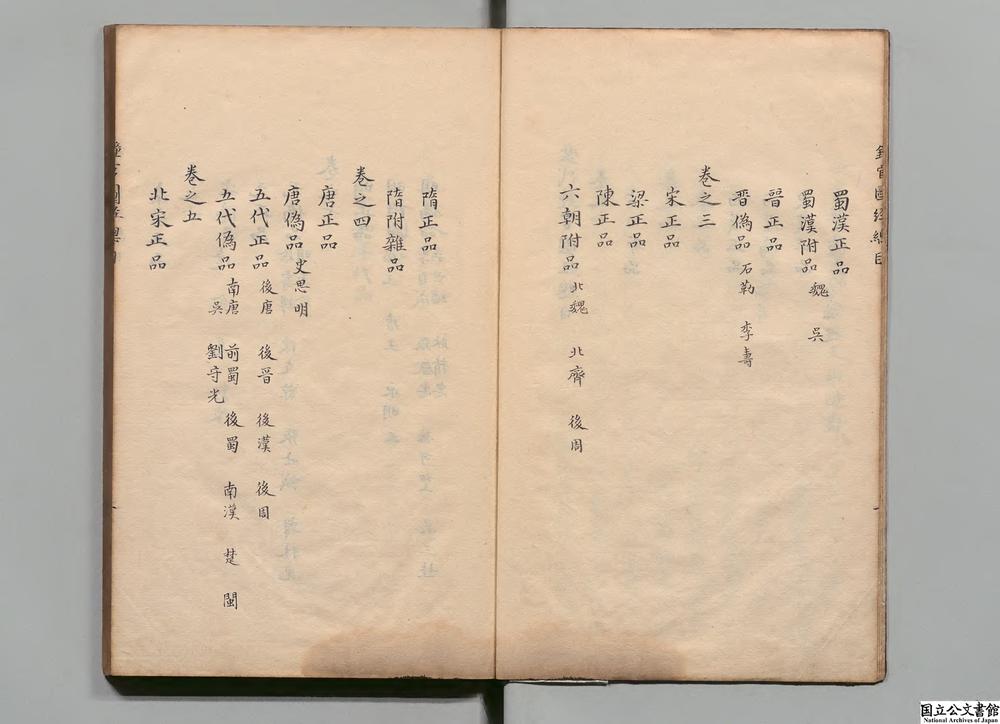 蜀漢正品
蜀漢附品 魏 吳
晉正品
晉偽品 石勒 李壽
卷之三
宋正品
梁正品
陳正品
六朝附品 北魏 北齊 後周
隋正品
隋附雜品
卷之四
唐正品
唐偽品 史思明
五代正品 後唐 後晉 後漢 後周
五代偽品 南唐 前蜀 後蜀 南漢 楚 閩
吳 劉守光
卷之五
北宋正品
国立公文書館
National Archives of Japan